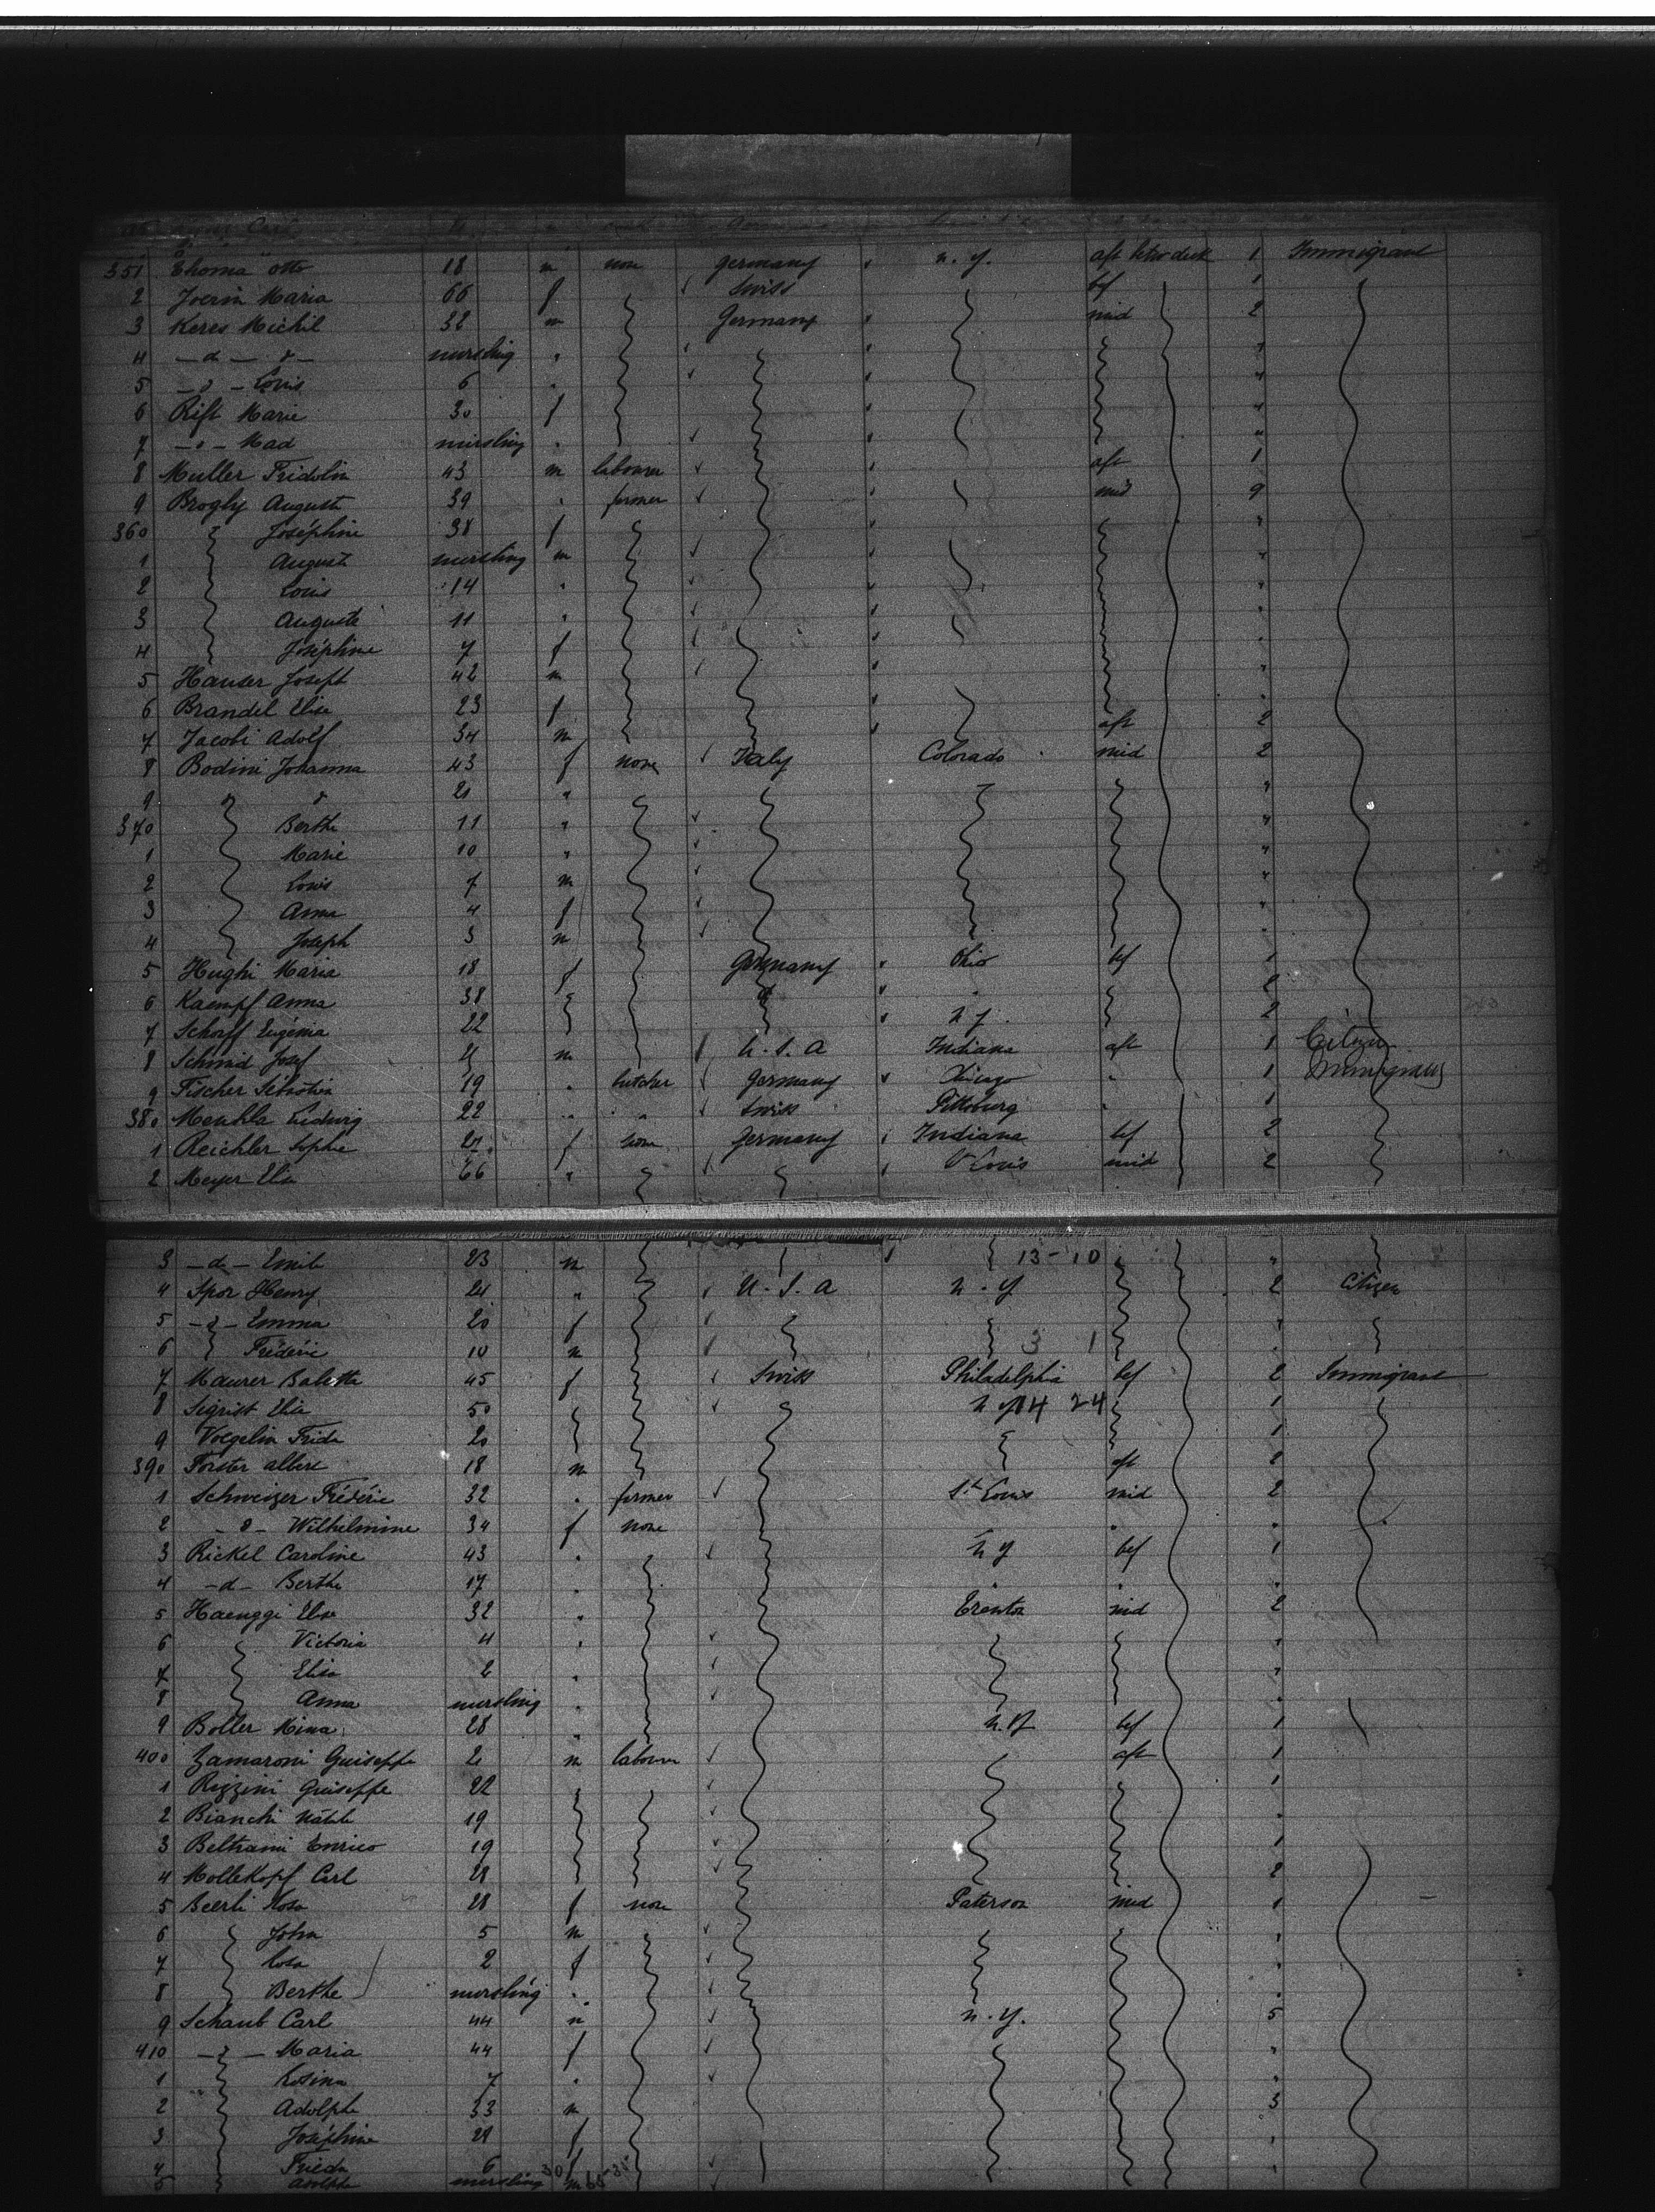 351 Thoma Otto 18 m none Germany n.y. aft betw deck 1 Immigrant
2 Joerin Maria 66 f Swiss bef 1
3 Keres Michil 38 m Germany mid 2
4 -d- d- nursling "
5 -d- Louis 6 "
6 Rift Marie 30 f
7 -d- Mad nursling "
8 Muller Fridolin 43 m labourer aft 1
9 Brogly August 39 " farmer mid 9
360 Joséphine 38 f
1 August nursling m
2 Louis 14 "
3 Auguste 11 "
4 Joséphine 7 f
5 Hauser Joseph 42 m
6 Brandel Elise 23 f aft 2
7 Jacobi Adolf 34 m
8 Bodini Johanna 43 f none Italy Colorado mid 2
9 d 21 "
370 Berthe 11 "
1 Marie 10 "
2 Louis 7 m
3 Anna 4 f
4 Joseph 3 m
5 Hughi Maria 18 f Germany Ohio bef 1
6 Kaempf Anna 38 2
7 Schorff Eugénia 22 n y. 2
8 Schmid Josef m U.S.A Indiana aft 1 Citizen
9 Fischer Sébastien 19 " butcher Germany Chicago " 1 Immigrant
380 Menkla Ludwig 22 " " Swiss Pittsburg " 1
1 Reichler Sophie f none Germany Indiana bef 2
2 Meyer Elise 66 " St Louis mid 2
3 -d- Emile 23 m 13-10 "
4 Spor Henry 21 " U.S.A n.y 2 Citizen
5 -d- Emma 20 f
6 Fréderic 10 m 3 1
7 Maurer Babette 45 f Swiss Philadelphia bef 2 Immigrant
8 Sigrist Elise 50 n y 14 24 1
9 Voegelin Frida 20 1
390 Forster Albert 18 m aft 2
1 Schweizer Fréderic 32 " farmer St Louis mid 2
2 -d- Wilhelmine 34 f none " "
3 Rickel Caroline 43 " n y bef 1
4 -d- Berthe 17 " " " "
5 Haenggi Elise 32 " Trenton mid 2
6 Victoria 4 "
7 Elisa 2 "
8 Anna nursling "
9 Boller Mina 28 " n.y bef 1
400 Zamaroni Guiseppe m labourer aft 1
1 Rizzini Guiseppe 22 1
2 Bianchi Natale 19 "
3 Beltrami Enrico 19 1
4 Mollekopf Carl 28 2
5 Beerli Rosa 28 f none Paterson mid 1
6 John 5 m
7 Rosa 2 f
8 Berthe nursling "
9 Schaub Carl 44 m n.y. 5
410 -d- Maria 44 f "
1 Rosina 7 "
2 Adolphe 33 m 3
3 Joséphine 29 f
4 Frieda 6 f
5 Adolphe nursling m